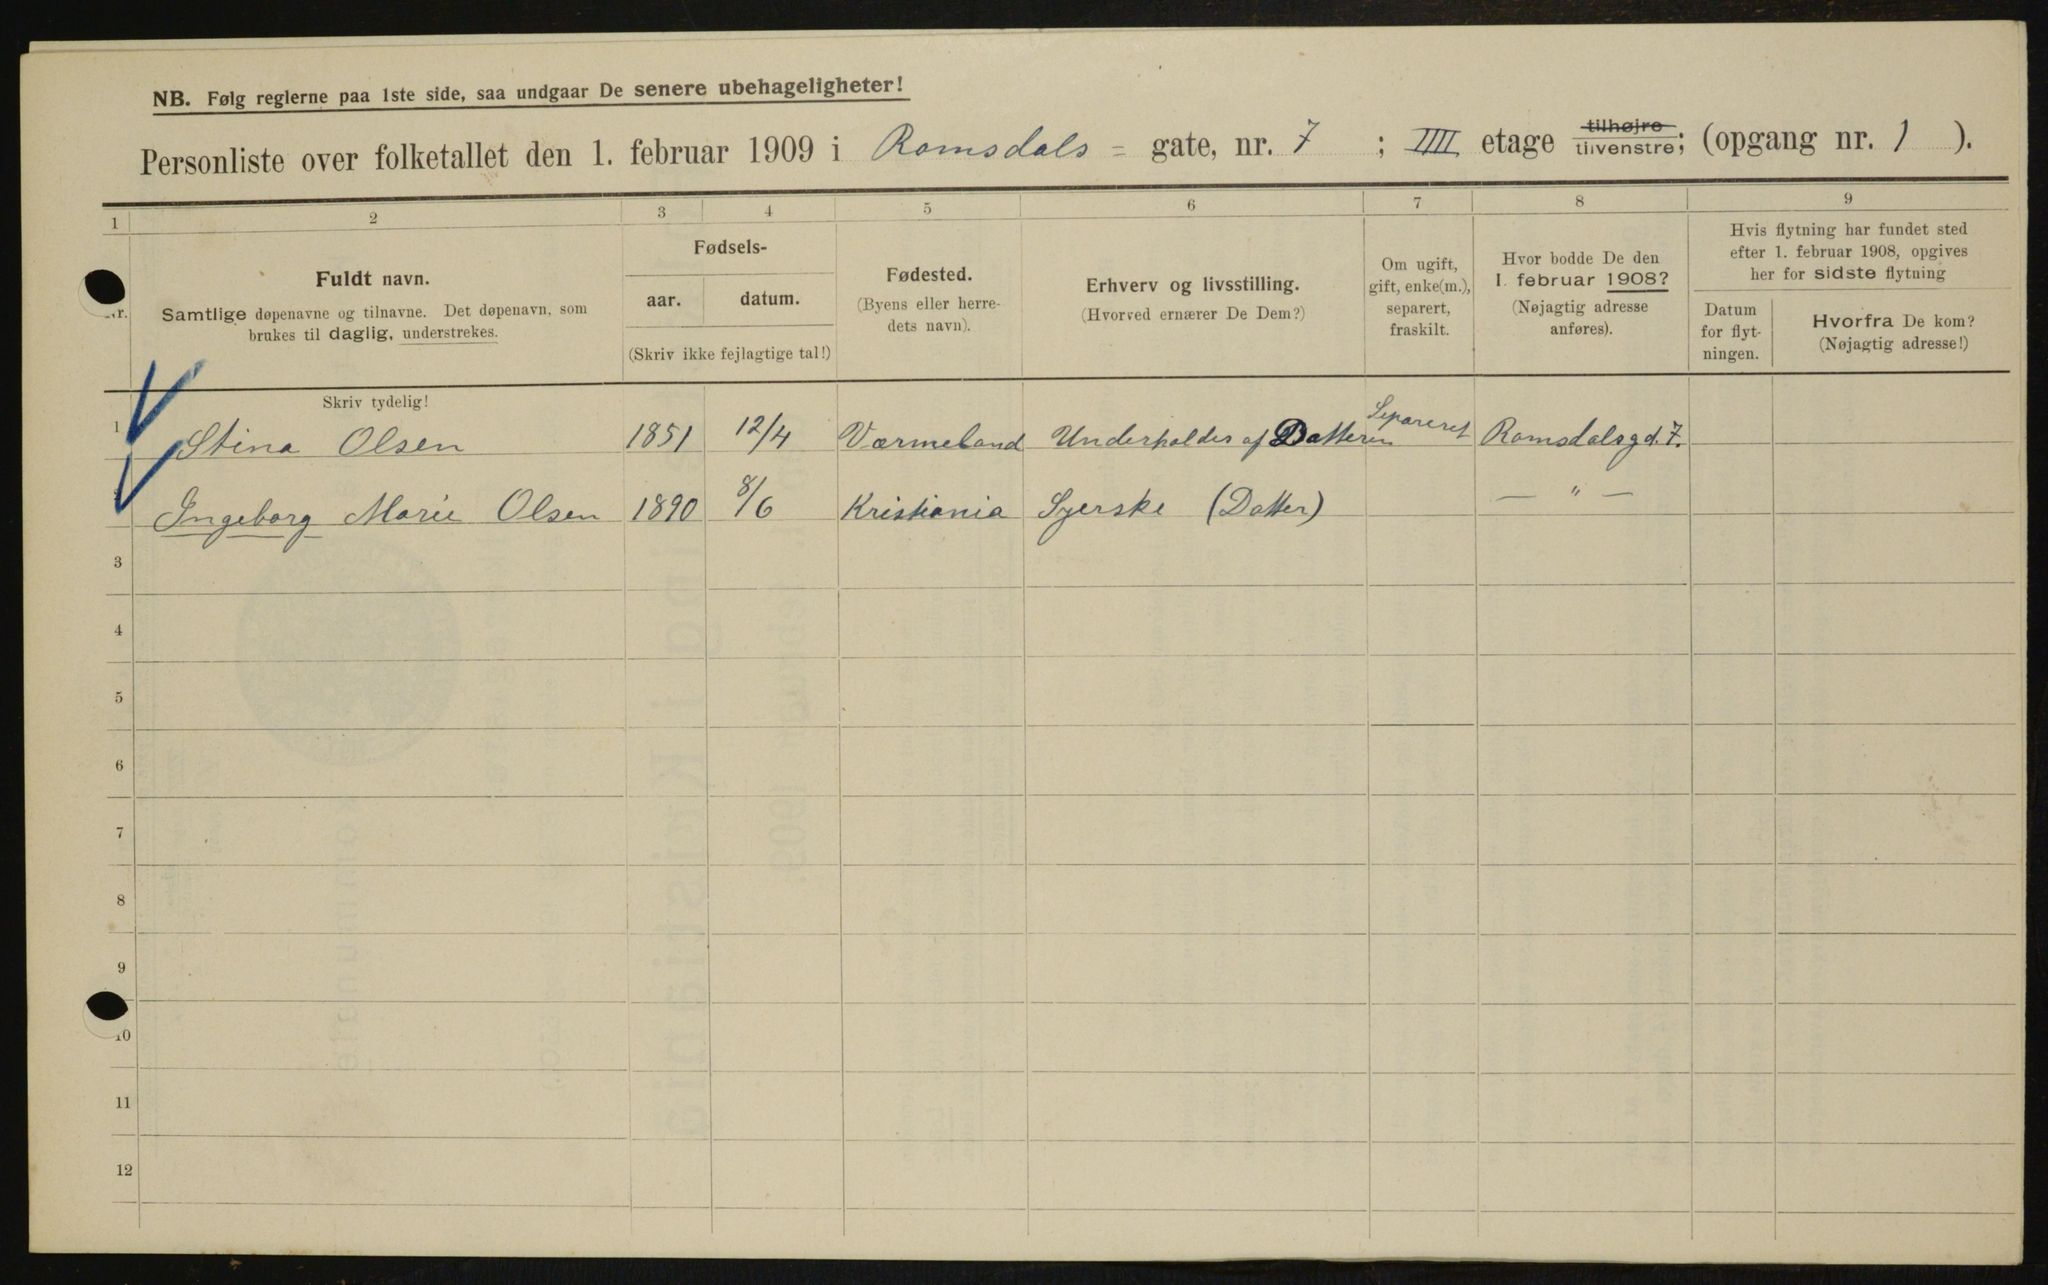 NB. Følg reglerne paa 1ste side, saa undgaar De senere ubehageligheter!
Personliste over folketallet den 1. februar 1909 i Romsdals = gate, nr. 7 ; IIII etage tilhøjre tilvenstre; (opgang nr. 1 ).
1 2 3 4 5 6 7 8 9
Nr.
Fuldt navn.
Samtlige døpenavne og tilnavne. Det døpenavn, som
brukes til daglig, understrekes.
Fødsels-
aar. datum.
(Skriv ikke fejlagtige tal!)
Fødested.
(Byens eller herre-
dets navn).
Erhverv og livsstilling.
(Hvorved ernærer De Dem?)
Om ugift,
gift, enke(m.),
separert,
fraskilt.
Hvor bodde De den
1. februar 1908?
(Nøjagtig adresse
anføres).
Hvis flytning har fundet sted
efter 1. februar 1908, opgives
her for sidste flytning
Datum
for flyt-
ningen.
Hvorfra De kom?
(Nøjagtig adresse!)
Skriv tydelig!
1 Stina Olsen 1851 12/4 Værmeland Underholdes af Datteren Separeret Romsdalsgd. 7.
Ingeborg Marie Olsen 1890 8/6 Kristiania Syerske (Datter) — " —
3
4
5
6
7
8
9
10
11
12